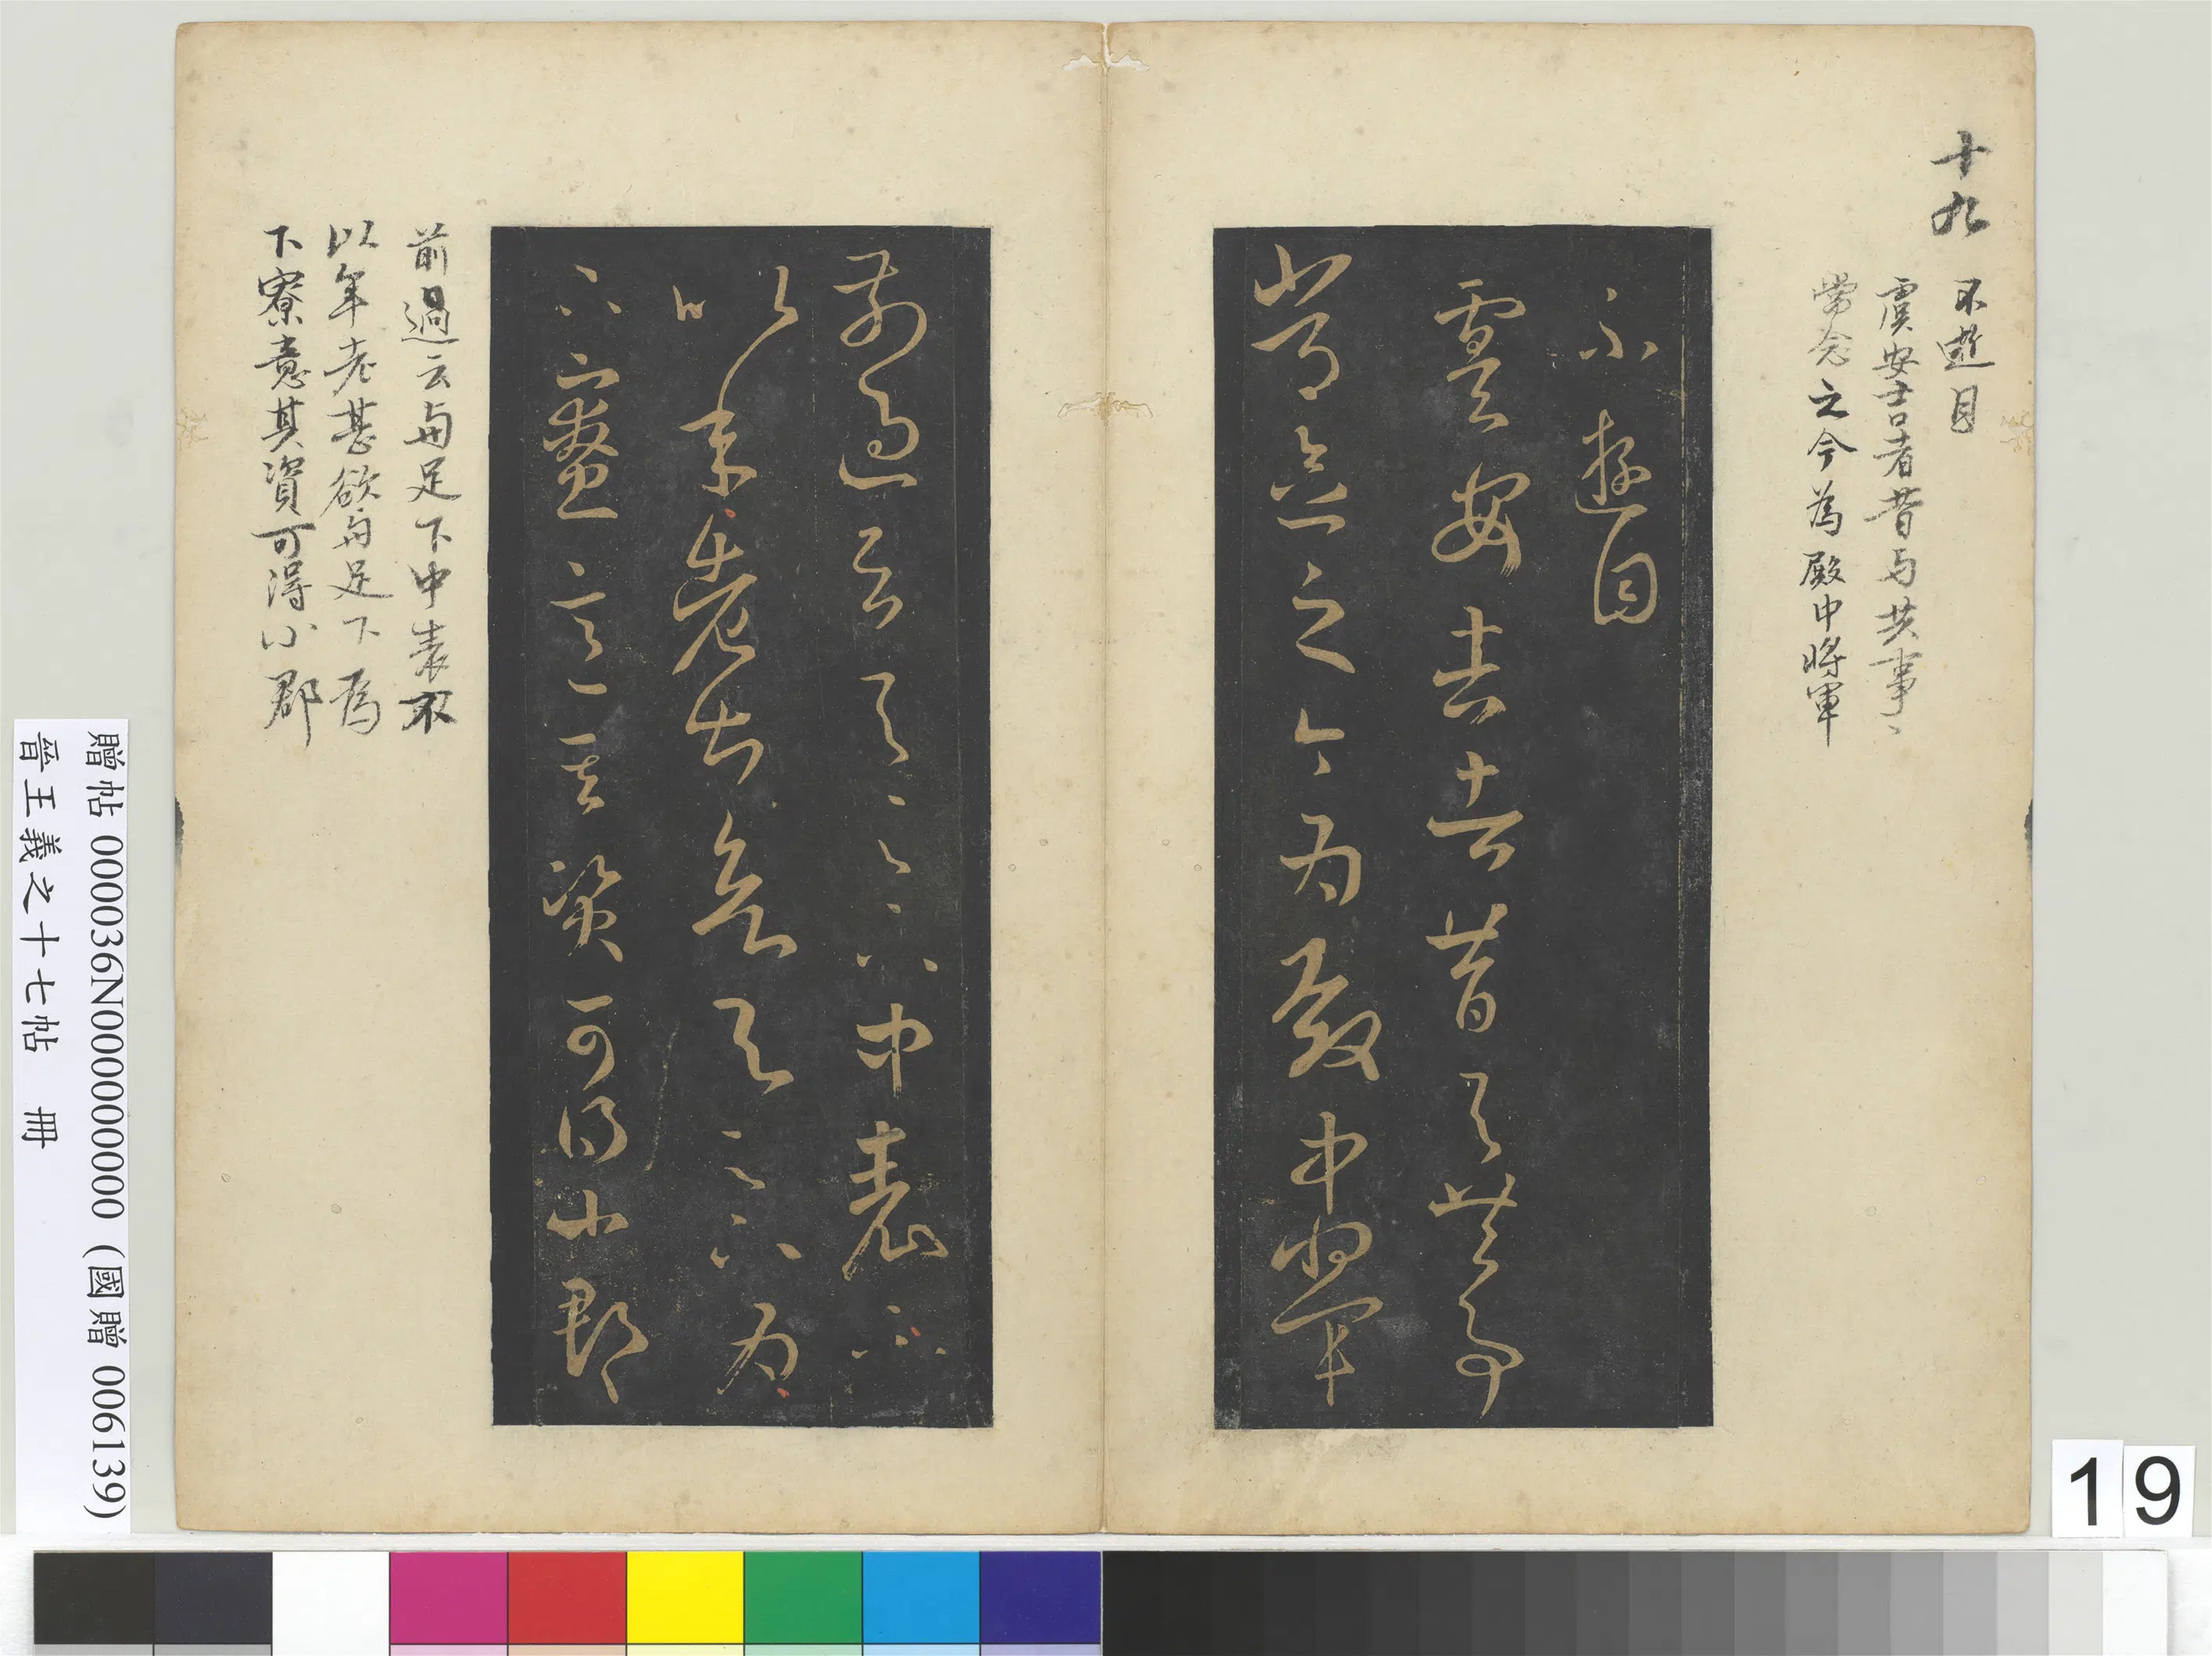 十九
不遊目
虞安吉者昔与共事〻
常念之今為殿中將軍
不遊目
虞安吉者昔与共事
常念之今为殿中将軍
前過云与足下中表不
以年老甚欲与足下为
下寮意其資可得小郡
前過云与足下中表不
以年老甚欲与足下為
下寮意其資可得小郡
贈帖 000036N000000000 (國贈 006139)
晉王羲之十七帖 冊
19